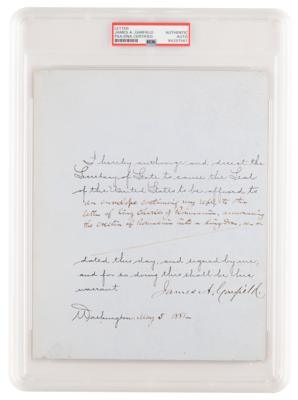 LETTER
JAMES A. GARFIELD
PSA/DNA CERTIFIED
AUTHENTIC
AUTO
I hereby authorize and direct the
Secretary of State to cause the Seal
of the United States to be affixed to
an envelope containing my reply to the
letter of King Charles of Roumania, announcing
the erection of Roumania into a kingdom,
dated this day, and signed by me,
and for so doing this shall be his
warrant.
James A. Garfield.
Washington, May 5 1881.